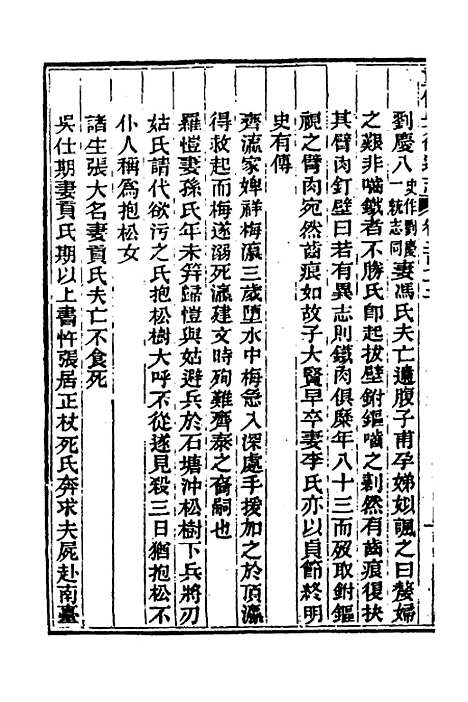 劉慶八史作劉慶一統志同妻馮氏夫亡遺腹子甫孕娣姒諷之曰嫠婦
之艱非嚙鐵者不勝氏卽起拔壁鈄鏂嚙之剨然有齒痕復抉
其臂肉釘壁曰若有異志則鐵肉俱糜年八十三而歿取鈄鏂
視之臂肉宛然齒痕如故子大賢早卒妻李氏亦以貞節終明
史有傳
齊流家婢祥梅瀛三歲墮水中梅急入深處手援加之於頂瀛
得救起而梅遂溺死瀛建文時殉難齊泰之裔嗣也
羅愷妻孫氏年未笄歸愷與姑避兵於石塘沖松樹下兵將刃
姑氏請代欲污之氏抱松樹大呼不從遂見殺三日猶抱松不
仆人稱為抱松女
諸生張大名妻貢氏夫亡不食死
吳仕期妻貢氏期以上書忤張居正杖死氏奔求夫屍赴南臺